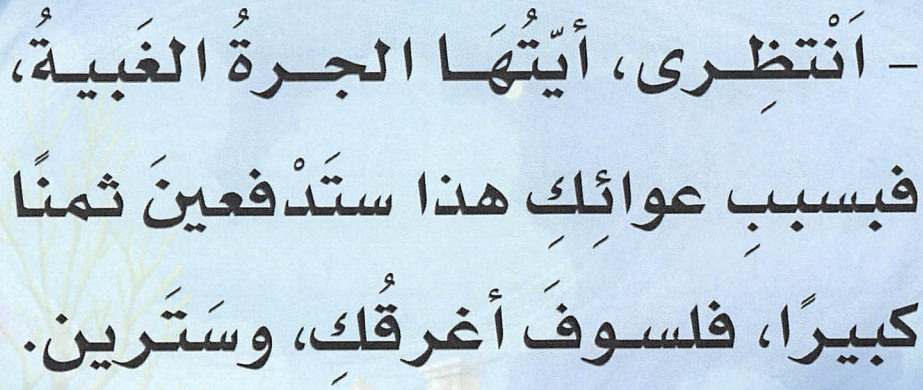 - اَنْتظِـرى، أيّتُهَـا الجـرةُ الغَبيـةُ،
فبسببِ عوائِكِ هذا ستَدْفعينَ ثمنًا
كبيرًا، فلسـوفَ أغرقُكِ، وسَتَرين.